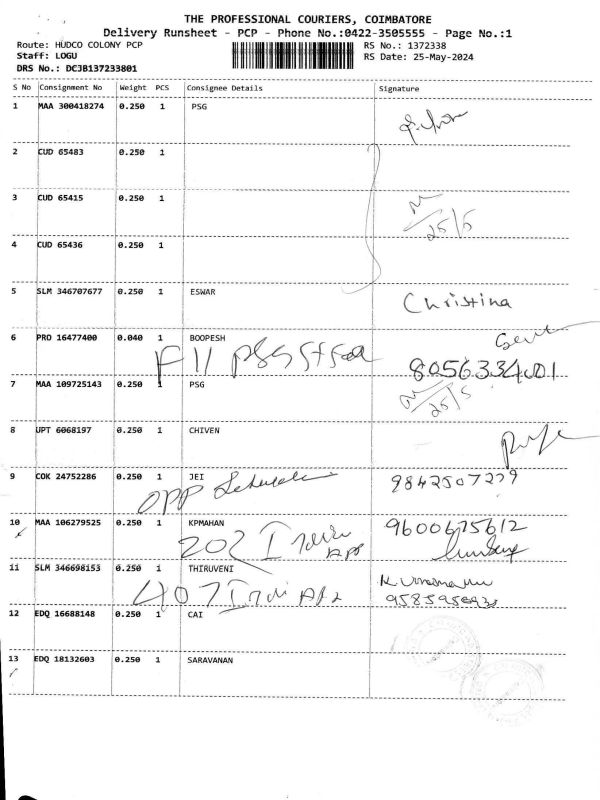 THE PROFESSIONAL COURIERS, COIMBATORE
Delivery Runsheet - PCP - Phone No.:0422-3505555 - Page No.:1
Route: HUDCO COLONY PCP RS No.: 1372338
Staff: LOGU RS Date: 25-May-2024
DRS No.: DCJB137233801
S No Consignment No Weight PCS Consignee Details Signature
1 MAA 300418274 0.250 1 PSG
2 CUD 65483 0.250 1
3 CUD 65415 0.250 1
25/5
4 CUD 65436 0.250 1
5 SLM 346707677 0.250 1 ESWAR
Christina
6 PRO 16477400 0.040 1 BOOPESH
F11 PSG Staff
7 MAA 109725143 0.250 1 PSG
25/5
8 UPT 6068197 0.250 1 CHIVEN
9 COK 24752286 0.250 1 JEI
OPP 9842507279
10 MAA 106279525 0.250 1 KPMAHAN 9600675612
202
11 SLM 346698153 0.250 1 THIRUVENI
407
12 EDQ 16688148 0.250 1 CAI
13 EDQ 18132603 0.250 1 SARAVANAN